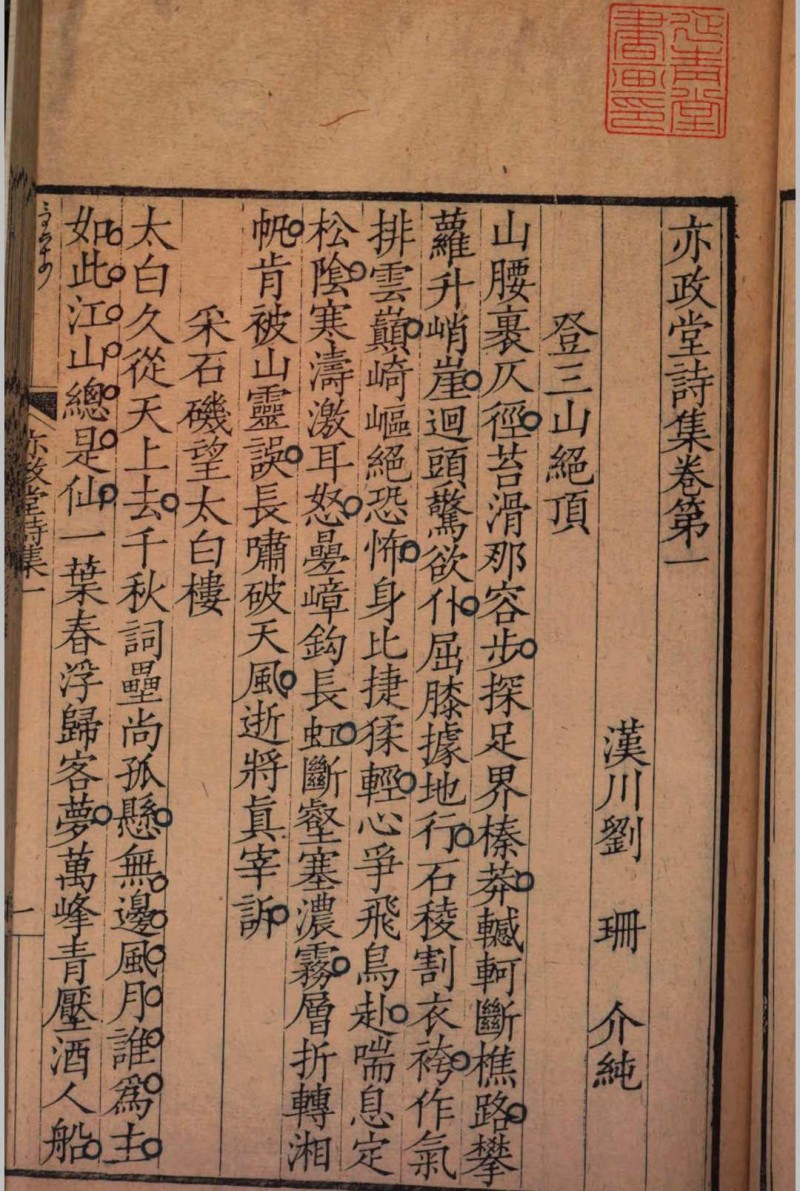 延青堂書畫印
亦政堂詩集卷第一
漢川劉 珊 介純
登三山絕頂
山腰裹仄徑苔滑那容步探足界榛莽轗軻斷樵路攀
蘿升峭崖迴頭驚欲仆屈膝據地行石稜割衣袴作氣
排雲巔崎嶇絕恐怖身比捷猱輕心爭飛鳥赴喘息定
松陰寒濤激耳怒曡嶂鈎長虹斷壑塞濃霧層折轉湘
帆肯被山靈誤長嘯破天風逝將真宰訴
采石磯望太白樓
太白久從天上去千秋詞壘尚孤懸無邊風月誰爲主
如此江山總是仙一葉春浮歸客夢萬峰青壓酒人船
亦政堂詩集一
一